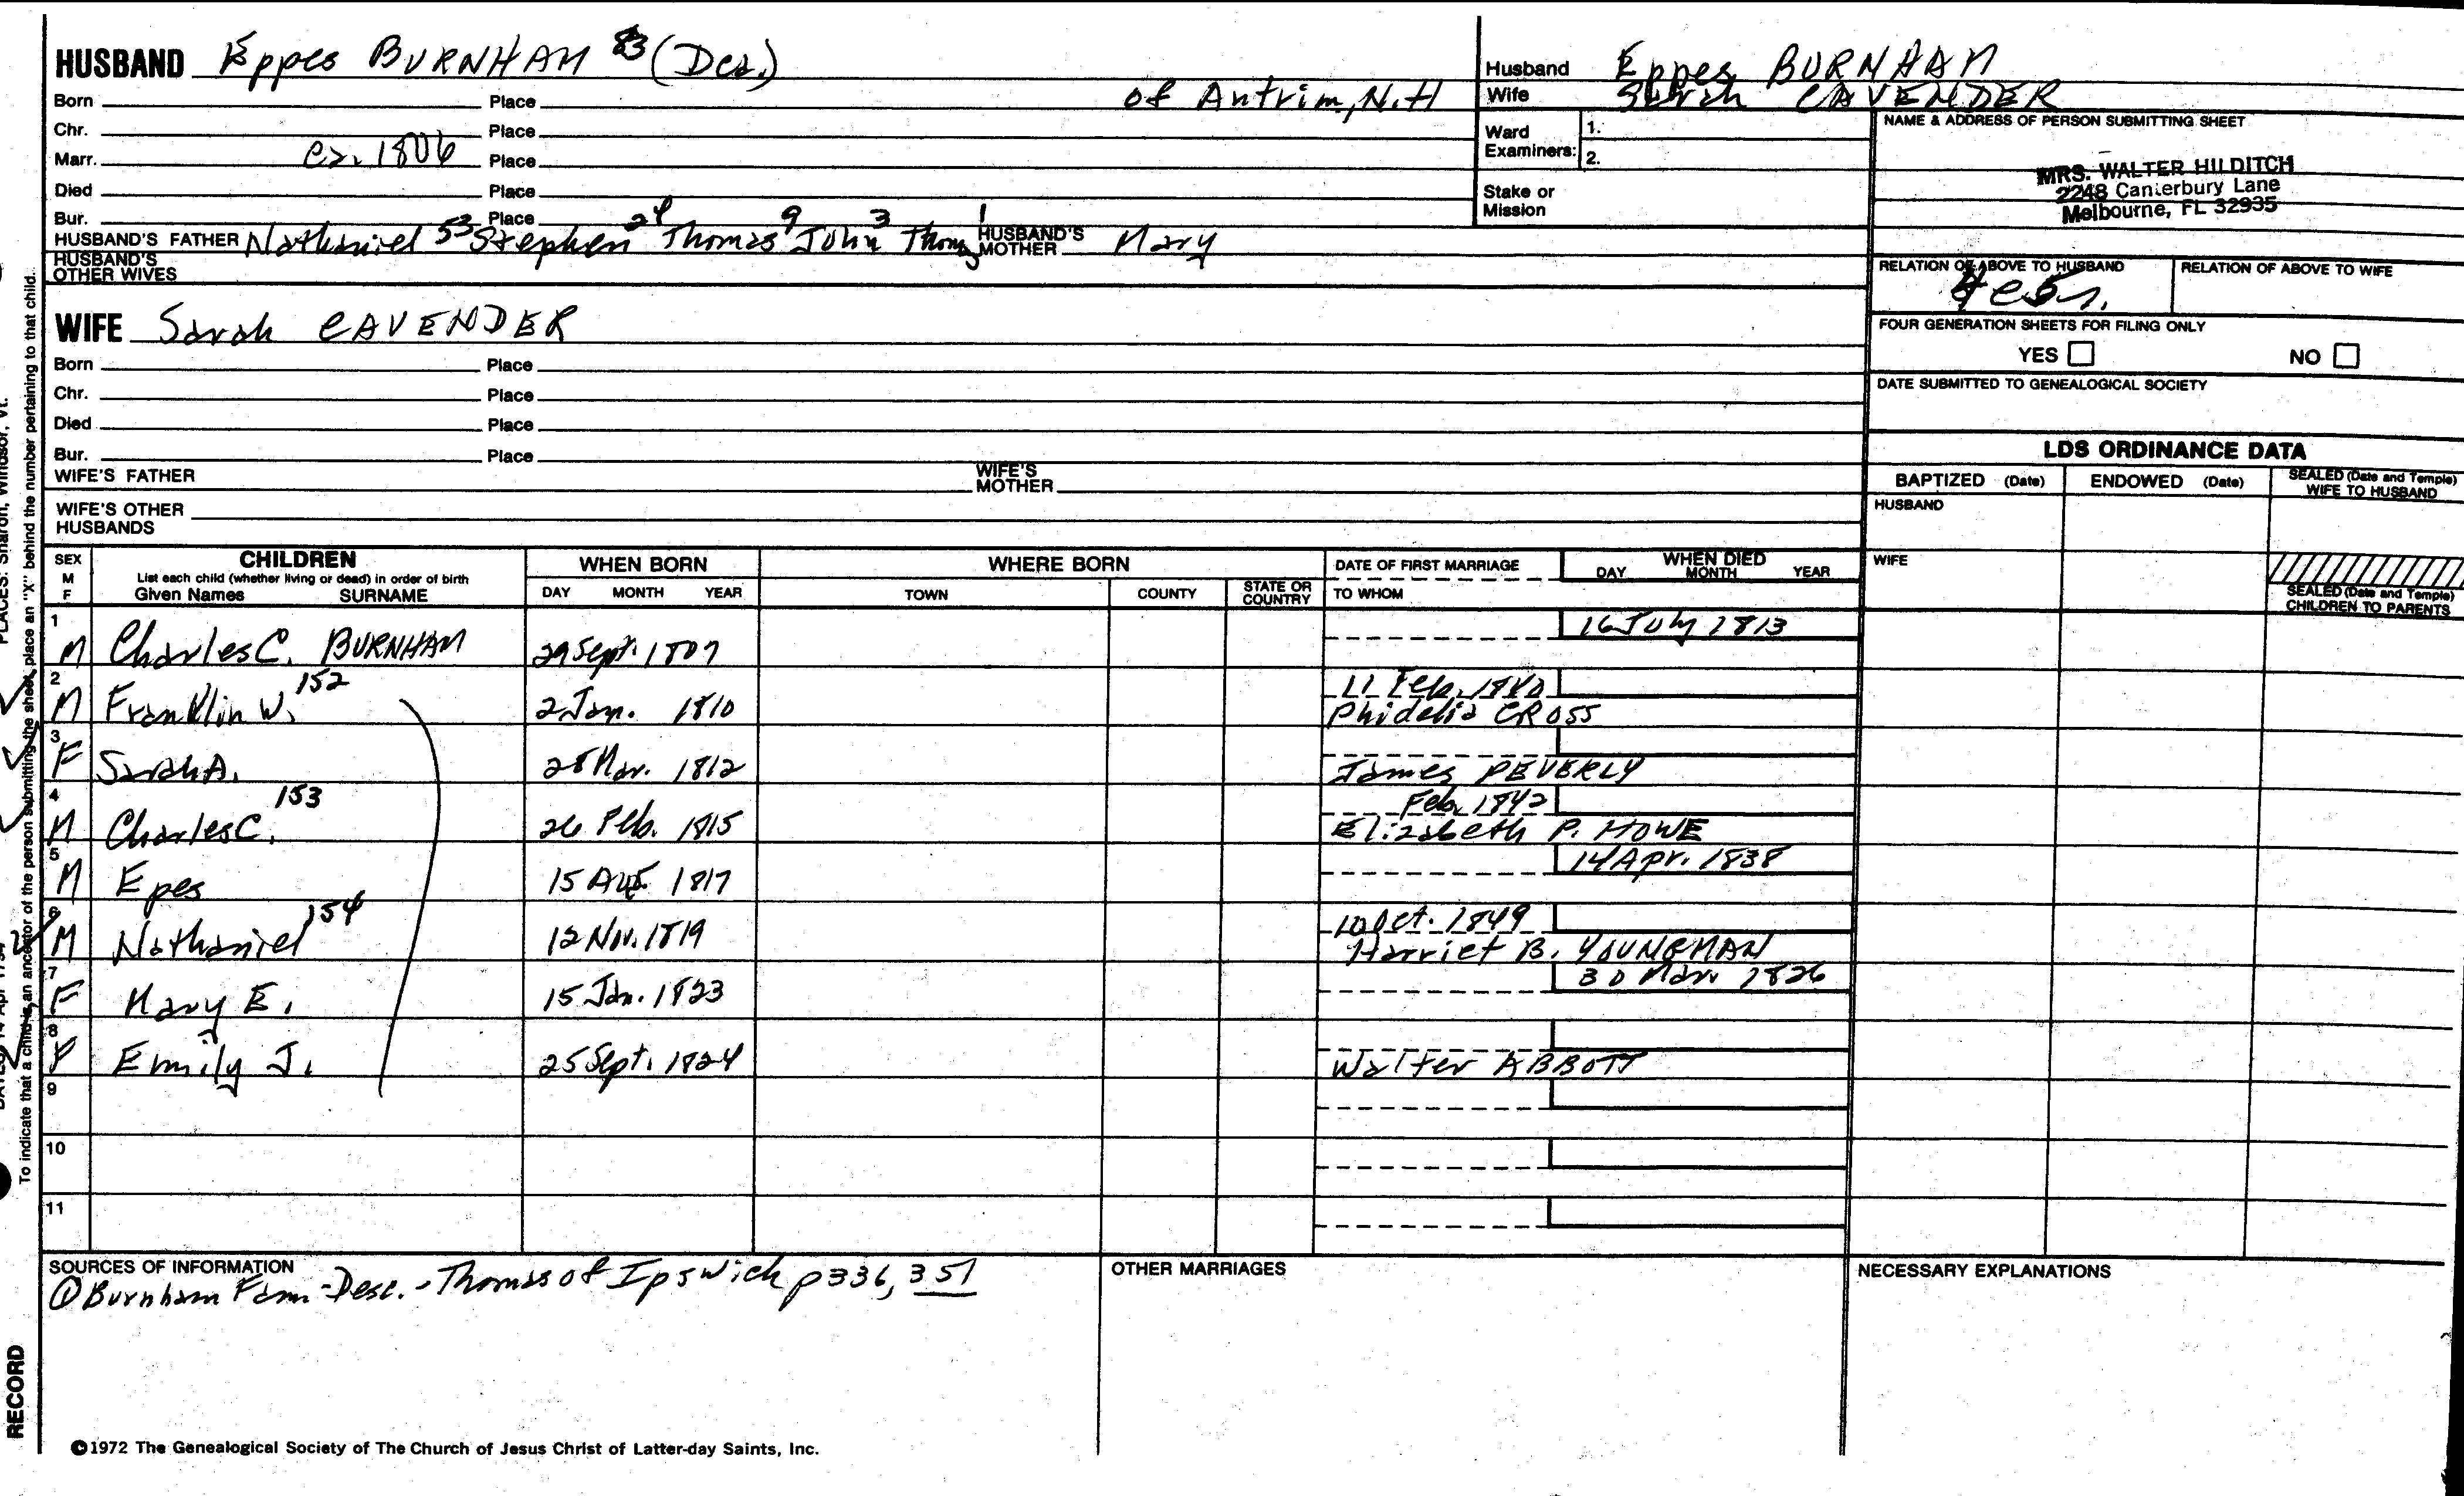 HUSBAND Eppes BURNHAM 83 (Dea.)
Born Place of Antrim, N.H
Chr. Place
Marr. ca. 1806 Place
Died Place
Bur. Place
HUSBAND'S FATHER Nathaniel 53 Stephen 24 Thomas 9 John 3 Thomas 1 HUSBAND'S MOTHER Mary
HUSBAND'S OTHER WIVES
Husband Eppes BURNHAM
Wife Sarah CAVENDER
Ward Examiners: 1.
2.
Stake or Mission
NAME & ADDRESS OF PERSON SUBMITTING SHEET
MRS. WALTER HILDITCH
2248 Canterbury Lane
Melbourne, FL 32935
RELATION OF ABOVE TO HUSBAND RELATION OF ABOVE TO WIFE
FOUR GENERATION SHEETS FOR FILING ONLY
YES NO
DATE SUBMITTED TO GENEALOGICAL SOCIETY
WIFE Sarah CAVENDER
Born Place
Chr. Place
Died Place
Bur. Place
WIFE'S FATHER WIFE'S MOTHER
WIFE'S OTHER HUSBANDS
LDS ORDINANCE DATA
BAPTIZED (Date) ENDOWED (Date) SEALED (Date and Temple) WIFE TO HUSBAND
HUSBAND
WIFE
SEALED (Date and Temple) CHILDREN TO PARENTS
SEX M F
CHILDREN
List each child (whether living or dead) in order of birth
Given Names SURNAME
WHEN BORN
DAY MONTH YEAR
WHERE BORN
TOWN COUNTY STATE OR COUNTRY
DATE OF FIRST MARRIAGE
TO WHOM
WHEN DIED
DAY MONTH YEAR
1 M Charles C. BURNHAM 29 Sept. 1807 16 July 1813
2 M Franklin W. 152 2 Jan. 1810 11 Feb. 1840
Phidelia CROSS
3 F Sarah A. 28 Mar. 1812
James PEVERLY
4 M Charles C. 153 26 Feb. 1815 Feb. 1842
Elizabeth P. HOWE
5 M Epes 15 Aug. 1817 14 Apr. 1838
6 M Nathaniel 154 12 Nov. 1819 10 Oct. 1849
Harriet B. YOUNGMAN
7 F Mary E. 15 Jan. 1823 30 Mar. 1826
8 F Emily J. 25 Sept. 1824
Walter ABBOTT
9
10
11
SOURCES OF INFORMATION
① Burnham Fam - Desc. - Thomas of Ipswich p 336, 351
OTHER MARRIAGES
NECESSARY EXPLANATIONS
©1972 The Genealogical Society of The Church of Jesus Christ of Latter-day Saints, Inc.
PLACES: Sharon, Windsor, Vt.
To indicate that a child is an ancestor of the person submitting the sheet, place an "X" behind the number pertaining to that child.
RECORD